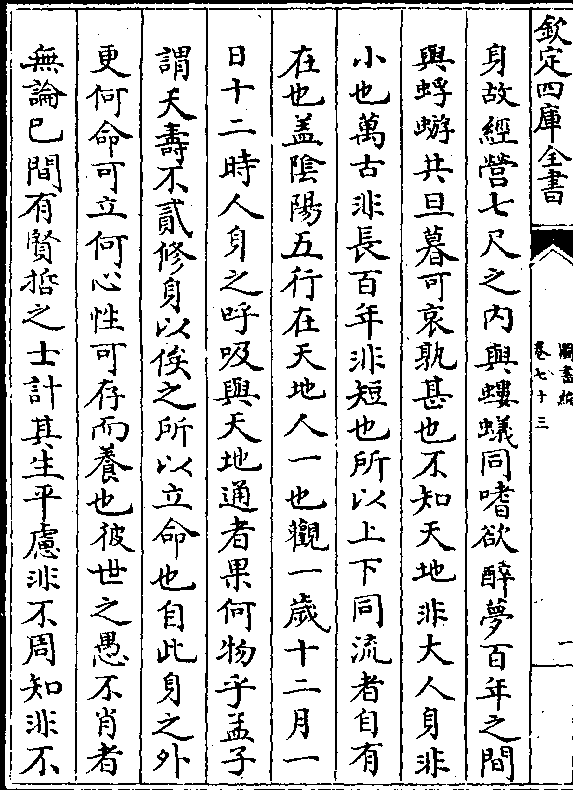 欽定四庫全書
圖書編
卷七十三
一
身故經營七尺之内與螻蟻同嗜欲醉夢百年之間
與蜉蝣共旦暮可哀孰甚也不知天地非大人身非
小也萬古非長百年非短也所以上下同流者自有
在也盖陰陽五行在天地人一也觀一歲十二月一
日十二時人身之呼吸與天地通者果何物乎孟子
謂夭壽不貳修身以俟之所以立命也自此身之外
更何命可立何心性可存而養也彼世之愚不肖者
無論已間有賢哲之士計其生平慮非不周知非不